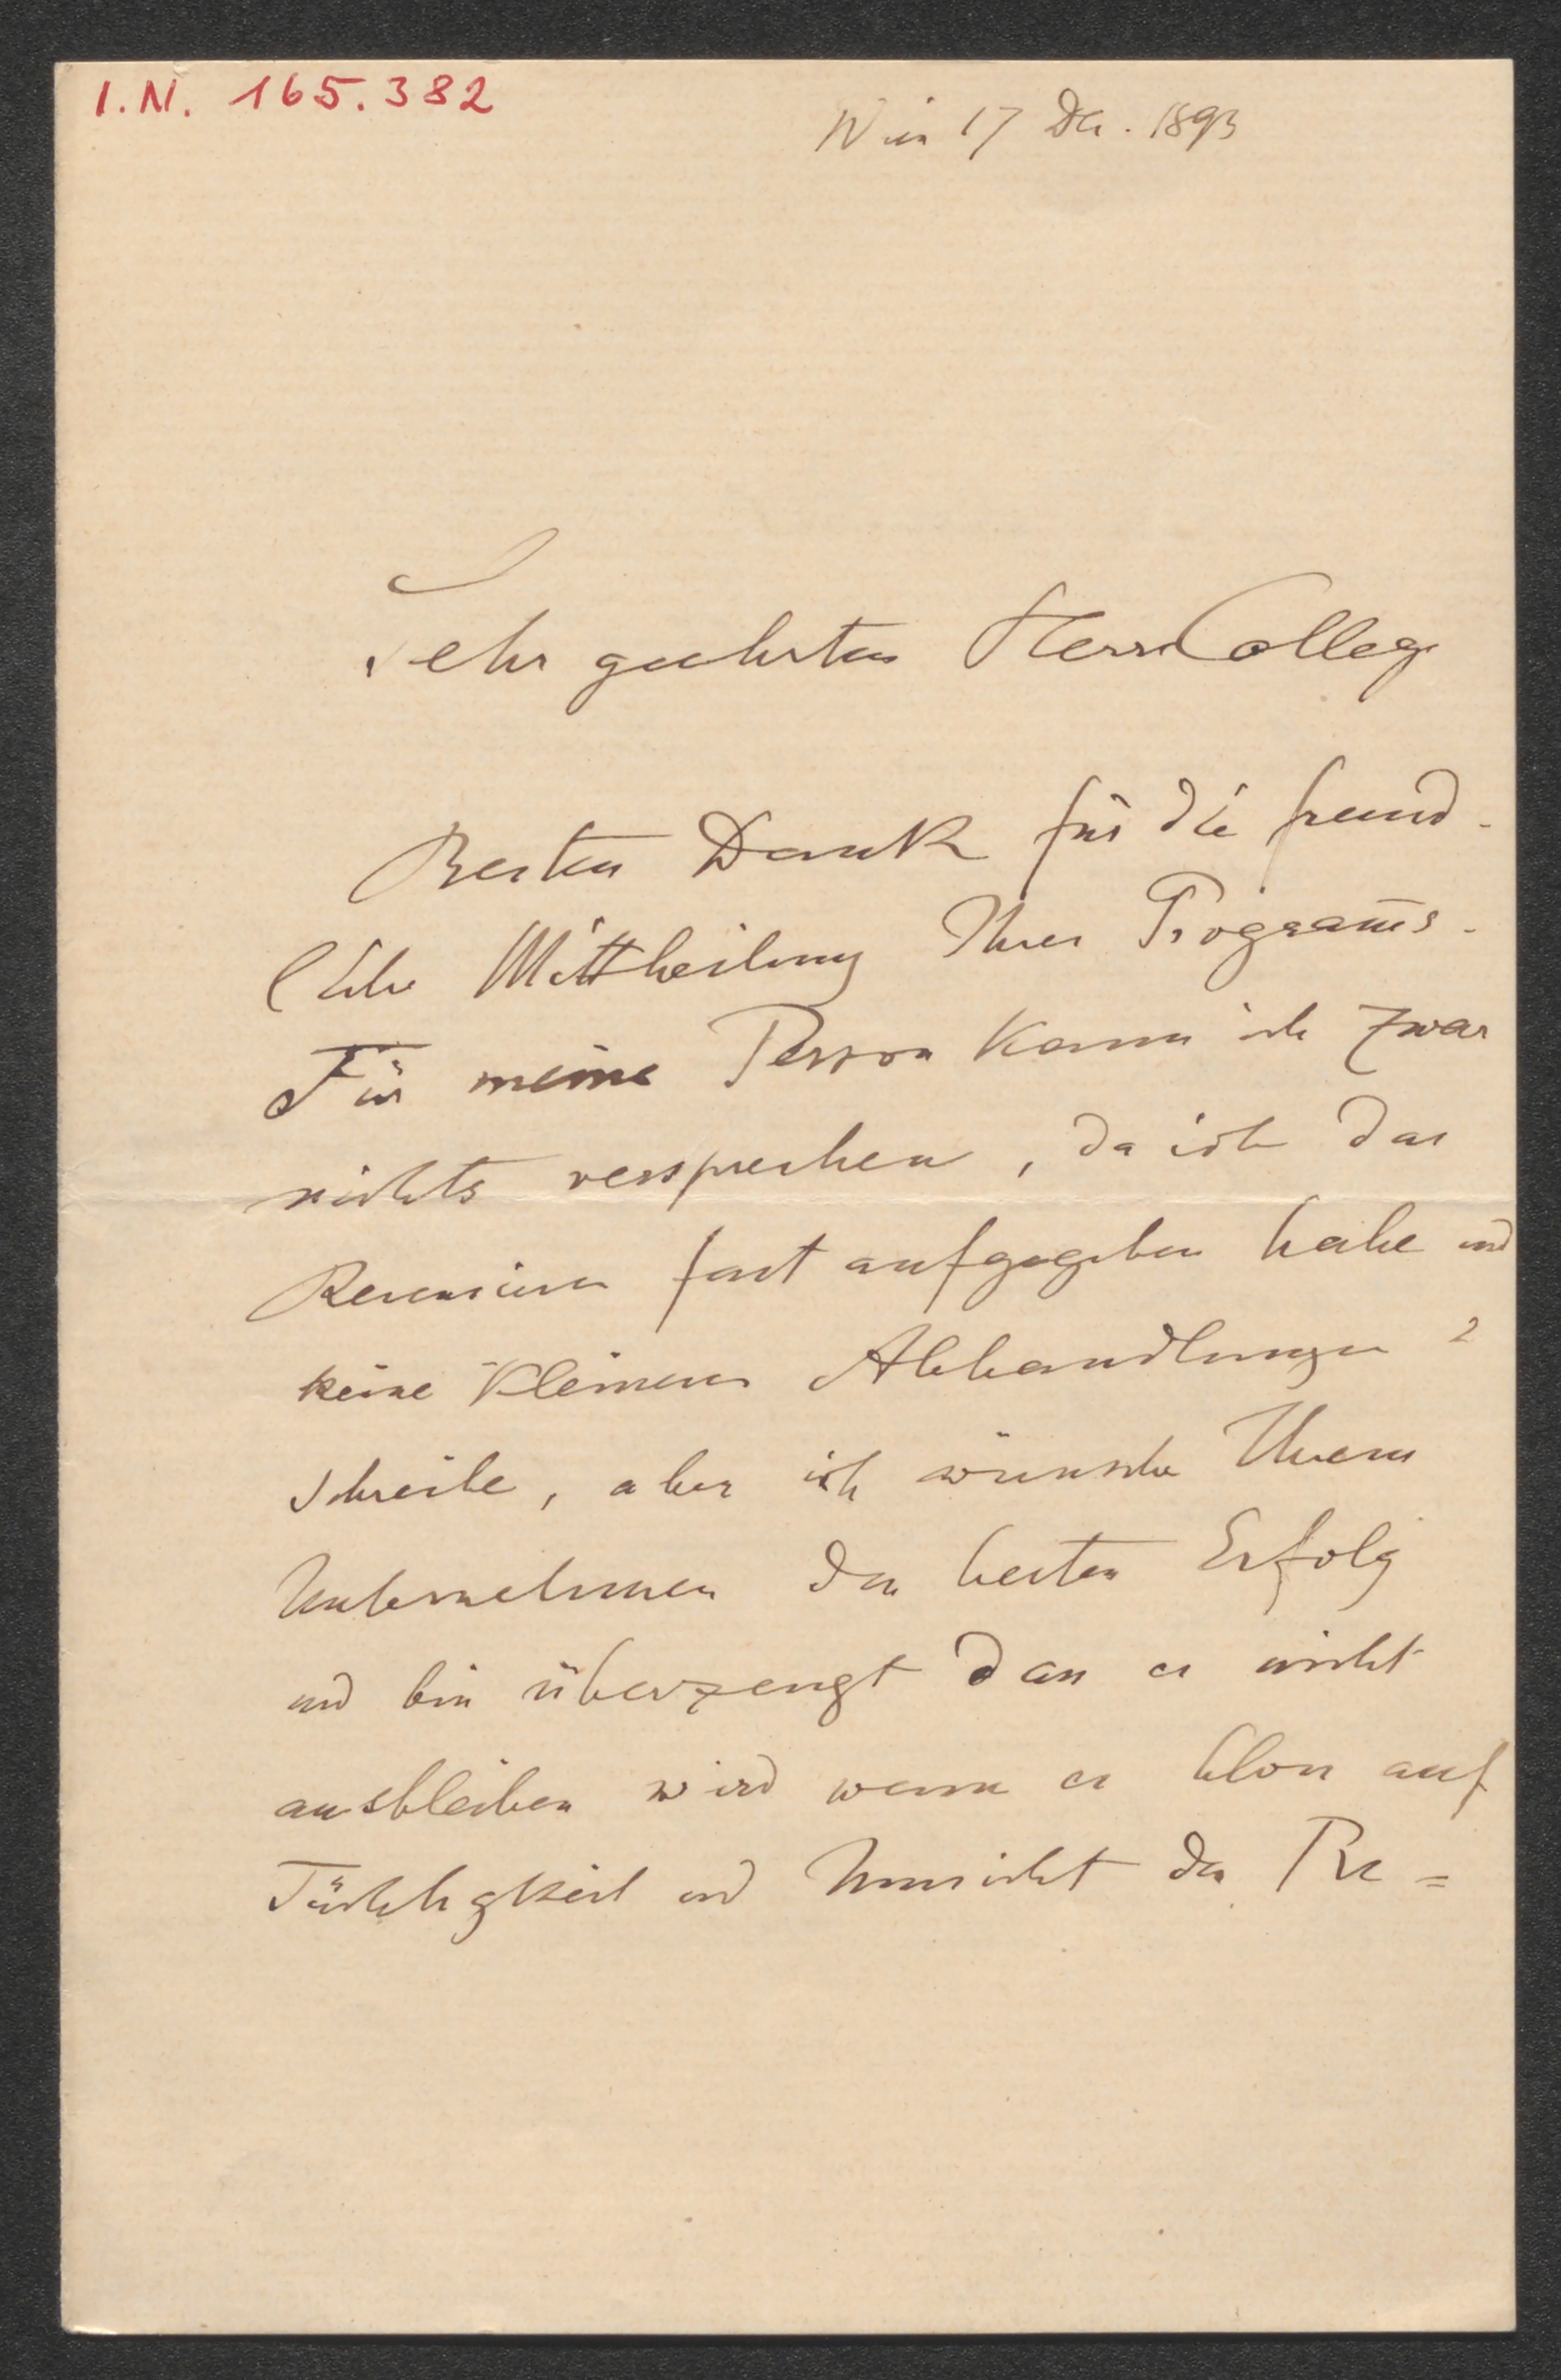 I.N. 165.382
Wien 17 Dec. 1893
Sehr geehrter Herr College
Besten Dank für die freund-
liche Mittheilung Ihres Programm̄s.
Für meine Person kann ich zwar
nichts versprechen, da ich das
Recensieren fast aufgegeben habe und
keine kleineren Abhandlungen
schreibe, aber ich wünsche Ihrem
Unternehmen den besten Erfolg
und bin überzeugt dass er nicht
ausbleiben wird wenn er bloss auf
Tüchtigkeit und Umsicht der Re=